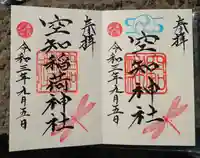 奉拝
空知神社
令和三年九月五日
奉拝
空知稲荷神社
令和三年九月五日